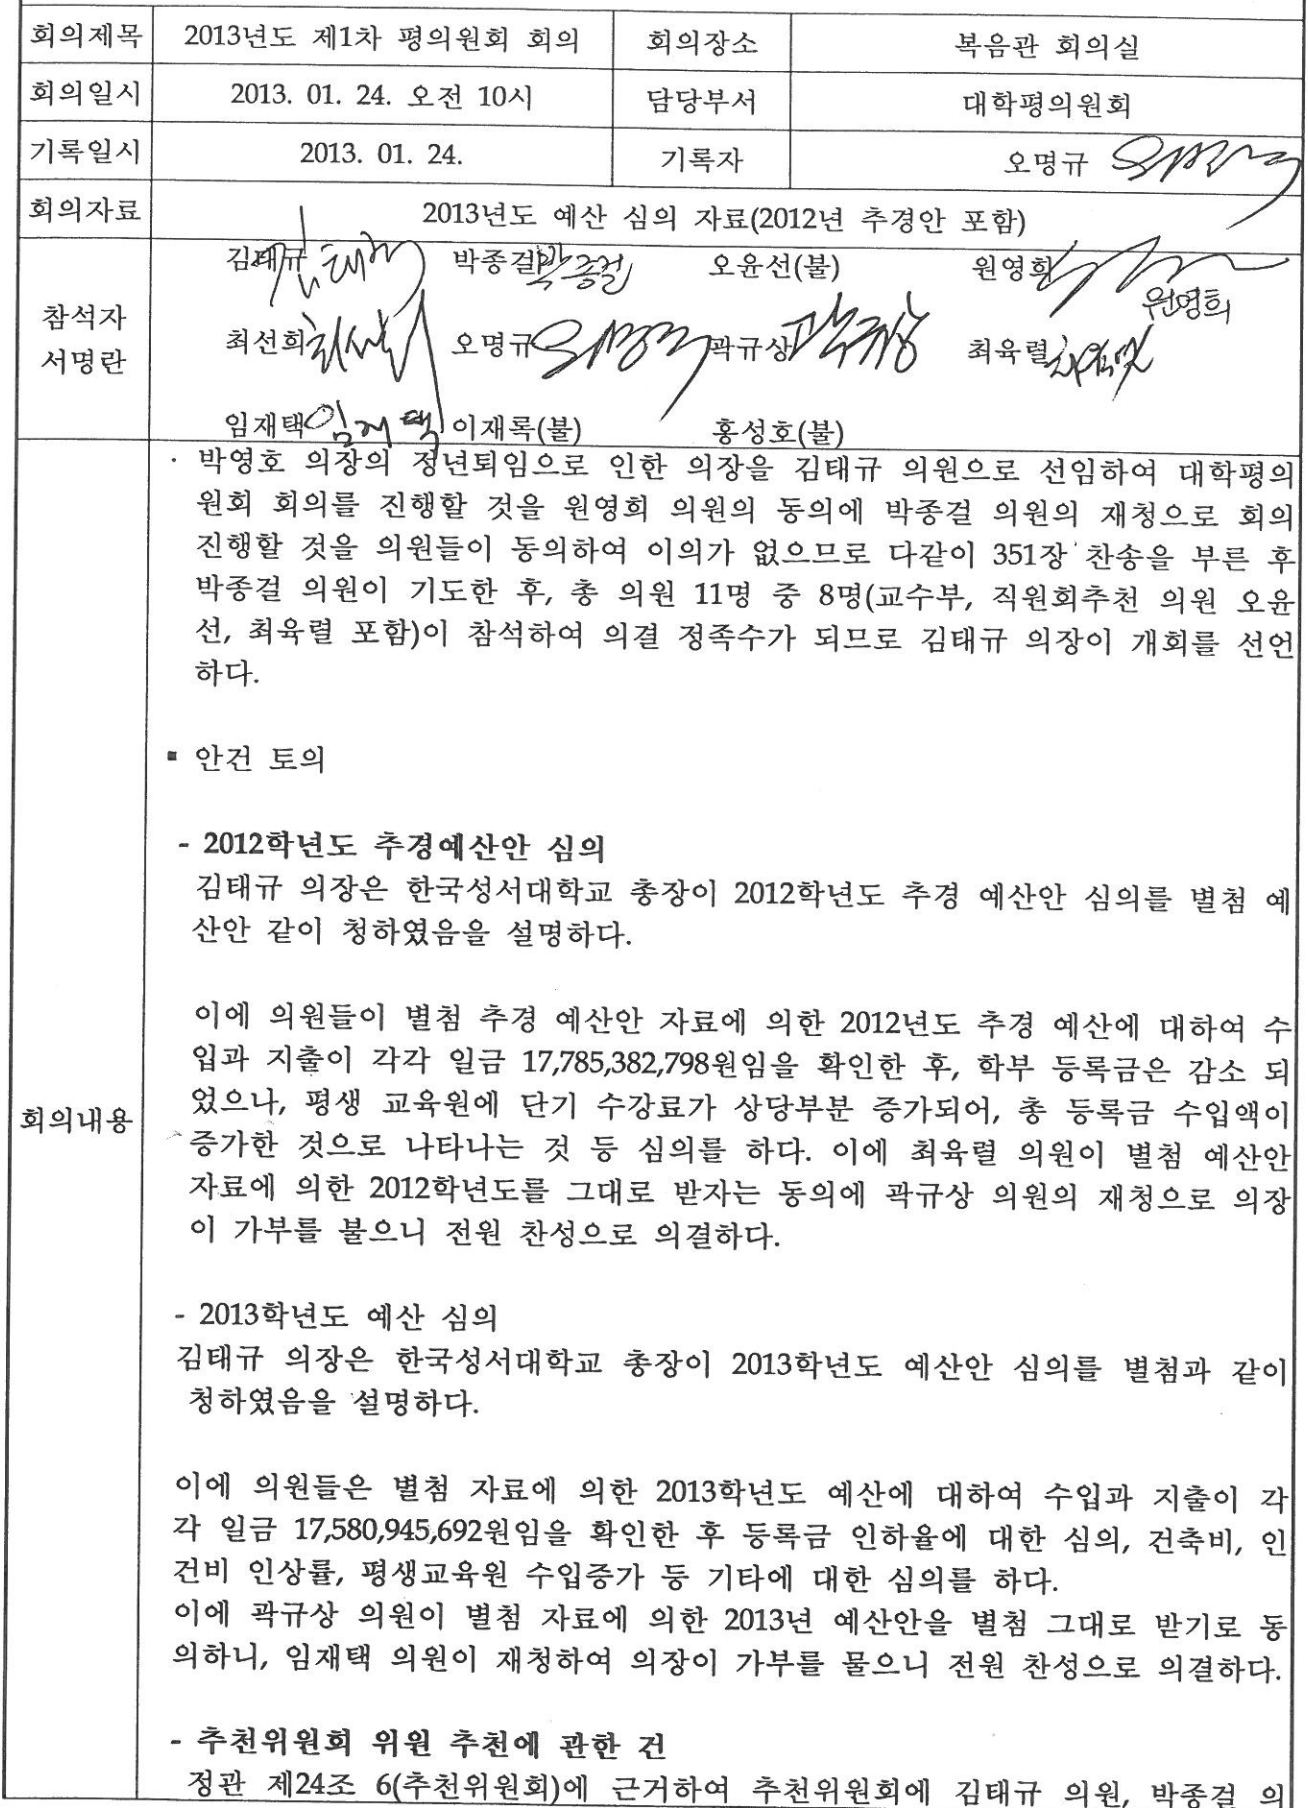 회의제목 2013년도 제1차 평의원회 회의 회의장소 복음관 회의실
회의일시 2013. 01. 24. 오전 10시 담당부서 대학평의원회
기록일시 2013. 01. 24. 기록자 오명규
회의자료 2013년도 예산 심의 자료(2012년 추경안 포함)
참석자
서명란
김태규 김태규 박종걸 박종걸 오윤선(불) 원영희 원영희
최선희 최선희 오명규 곽규상 곽규상 최육렬 최육렬
임재택 임재택 이재록(불) 홍성호(불)
회의내용
· 박영호 의장의 정년퇴임으로 인한 의장을 김태규 의원으로 선임하여 대학평의
원회 회의를 진행할 것을 원영희 의원의 동의에 박종걸 의원의 재청으로 회의
진행할 것을 의원들이 동의하여 이의가 없으므로 다같이 351장 찬송을 부른 후
박종걸 의원이 기도한 후, 총 의원 11명 중 8명(교수부, 직원회추천 의원 오윤
선, 최육렬 포함)이 참석하여 의결 정족수가 되므로 김태규 의장이 개회를 선언
하다.
▪ 안건 토의
- 2012학년도 추경예산안 심의
김태규 의장은 한국성서대학교 총장이 2012학년도 추경 예산안 심의를 별첨 예
산안 같이 청하였음을 설명하다.
이에 의원들이 별첨 추경 예산안 자료에 의한 2012년도 추경 예산에 대하여 수
입과 지출이 각각 일금 17,785,382,798원임을 확인한 후, 학부 등록금은 감소 되
었으나, 평생 교육원에 단기 수강료가 상당부분 증가되어, 총 등록금 수입액이
증가한 것으로 나타나는 것 등 심의를 하다. 이에 최육렬 의원이 별첨 예산안
자료에 의한 2012학년도를 그대로 받자는 동의에 곽규상 의원의 재청으로 의장
이 가부를 불으니 전원 찬성으로 의결하다.
- 2013학년도 예산 심의
김태규 의장은 한국성서대학교 총장이 2013학년도 예산안 심의를 별첨과 같이
청하였음을 설명하다.
이에 의원들은 별첨 자료에 의한 2013학년도 예산에 대하여 수입과 지출이 각
각 일금 17,580,945,692원임을 확인한 후 등록금 인하율에 대한 심의, 건축비, 인
건비 인상률, 평생교육원 수입증가 등 기타에 대한 심의를 하다.
이에 곽규상 의원이 별첨 자료에 의한 2013년 예산안을 별첨 그대로 받기로 동
의하니, 임재택 의원이 재청하여 의장이 가부를 물으니 전원 찬성으로 의결하다.
- 추천위원회 위원 추천에 관한 건
정관 제24조 6(추천위원회)에 근거하여 추천위원회에 김태규 의원, 박종걸 의